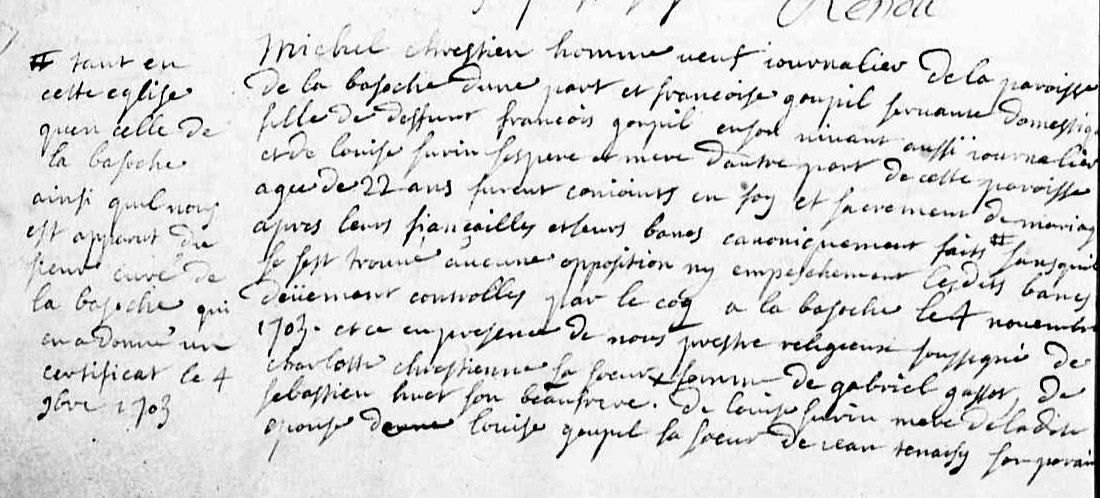 # tant en
cette eglise
qu'en celle de
la basoche
ainsi quil nous
est apparut du
sieur curé de
la basoche qui
en a donné un
certificat le 4
9bre 1703
Michel chrestien homme veuf iournalier de la paroisse
de la basoche dune part et francoise goupil servante domestiq
fille de deffunt francois goupil en son vivant aussi iournalier
et de louise surin ses pere et mere dautre part de cette paroisse
agee de 22 ans furent conioints en foy et sacrement de mariag
apres leurs fiançailles et leurs bancs canoniquement faits # sans quil
se soit trouvé aucune opposition ny empeschement lesdits bancs
deüement controlles par le coq a la basoche le 4 novembre
1703. et ce en presence de nous prestre religieux soussigné de
charlotte chrestienne sa soeur x femme de gabriel gasset, de
sebastien huet son beaufrere. de louise surin mere de la dite
epouse de louise goupil sa soeur de iean tenaisy son parain